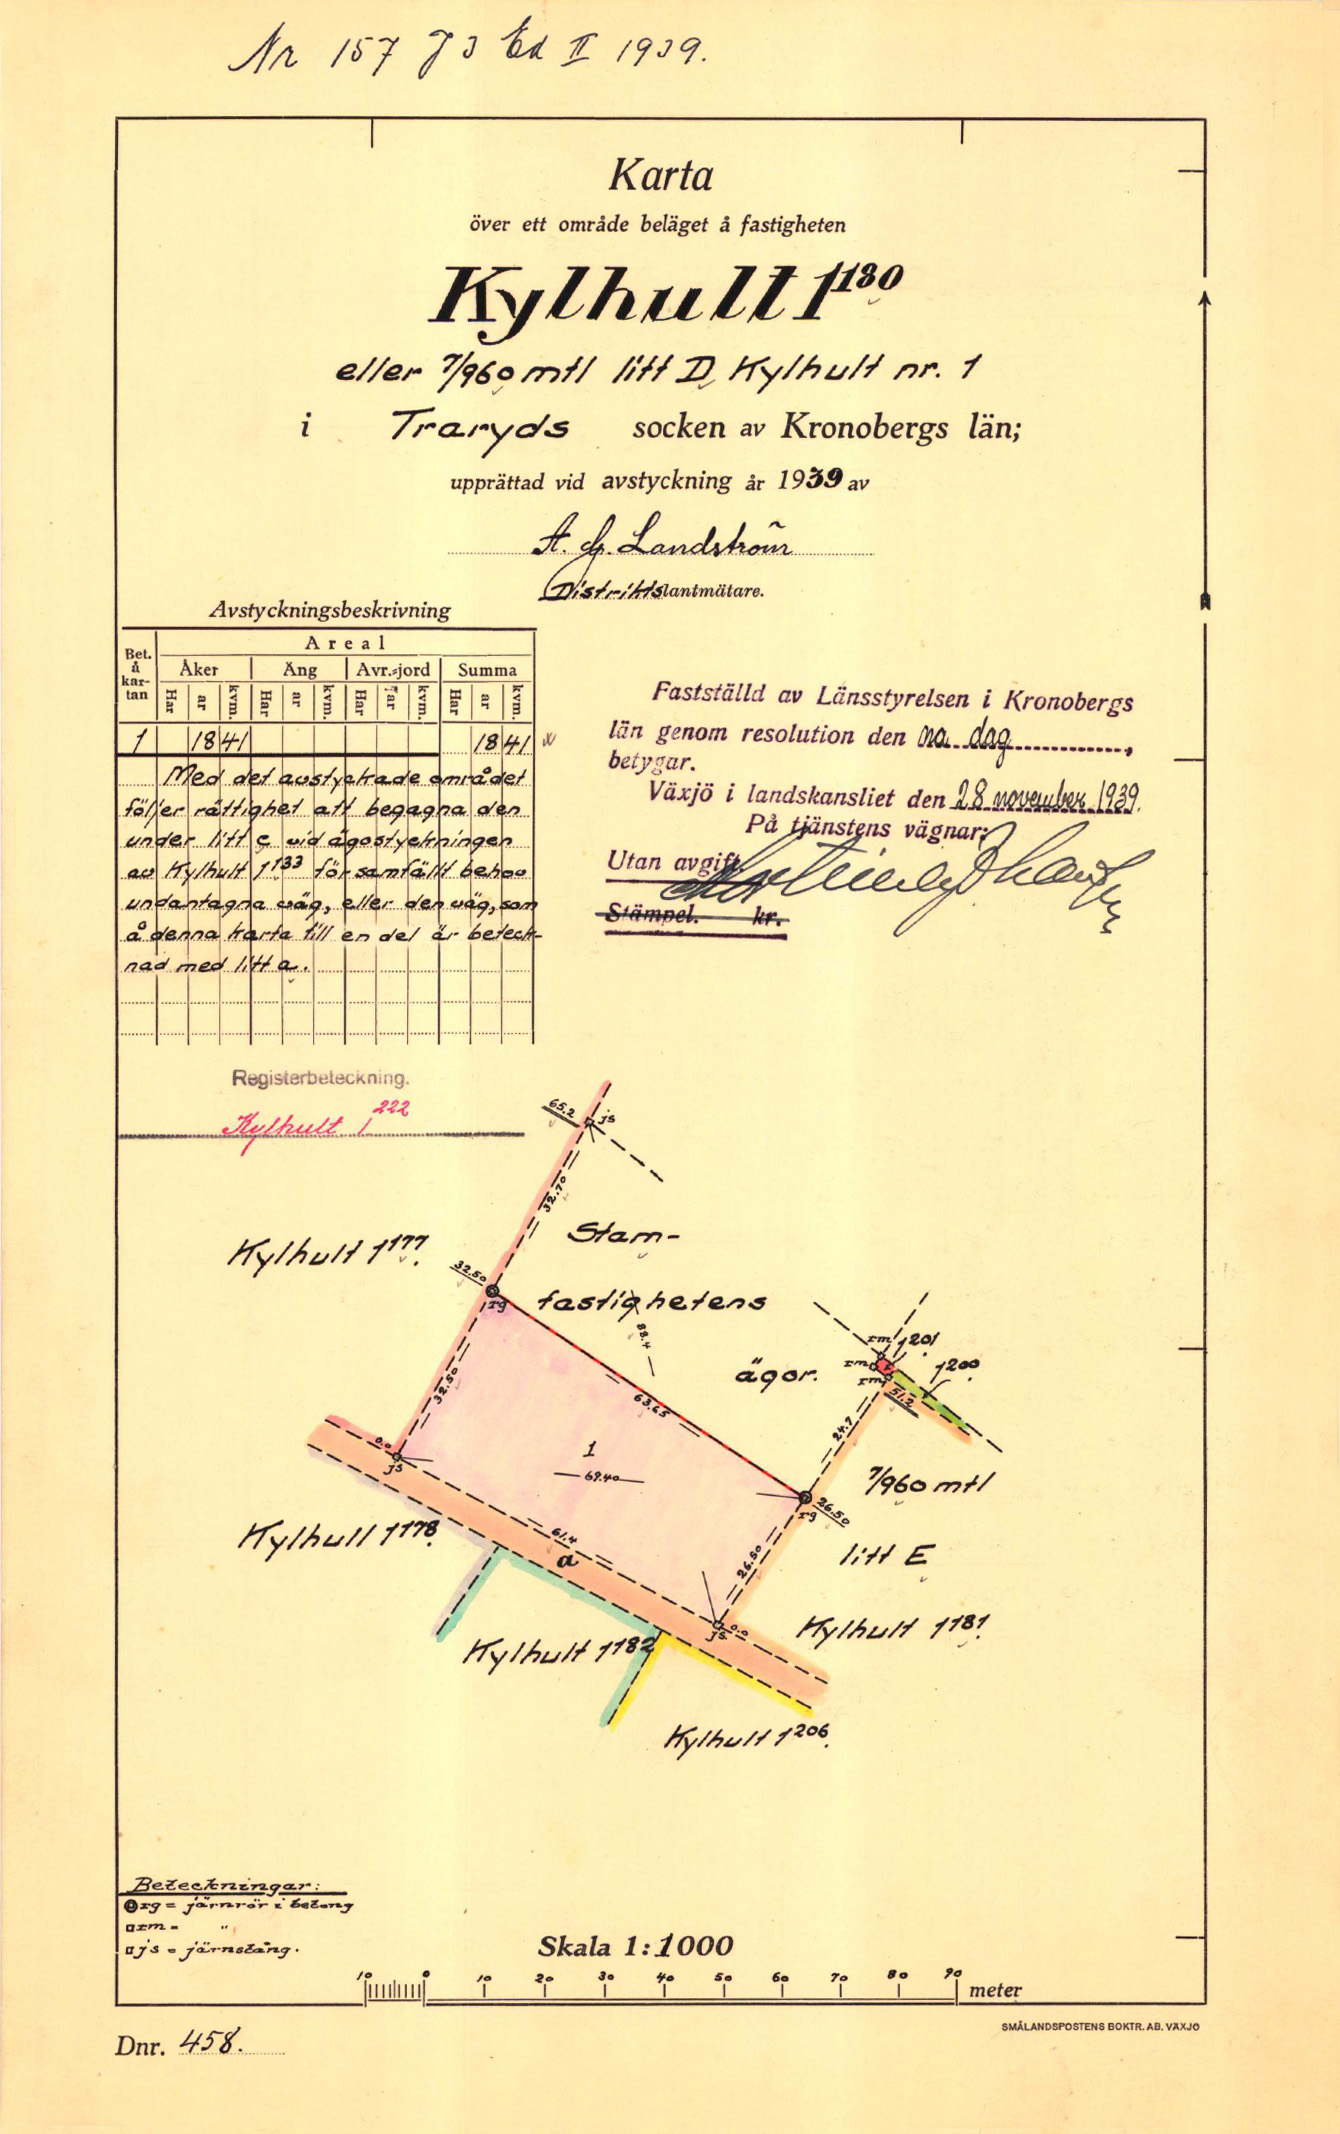 Nr 157 J 3 Ed II 1939.
Karta
över ett område beläget å fastigheten
Kylhult 1¹⁸⁰
eller 7/960 mtl litt D Kylhult nr. 1
i Traryds socken av Kronobergs län;
upprättad vid avstyckning år 1939 av
A. G. Landström
Distriktslantmätare.
Avstyckningsbeskrivning
Bet. å kar- tan
Areal
Åker Äng Avr.-jord Summa
Har ar kvm. Har ar kvm. Har ar kvm. Har ar kvm.
1 18 41 18 41
Med det avstyckade området
följer rättighet att begagna den
under litt c vid ägostyckningen
av Kylhult 1¹³³ för samfällt behov
undantagna väg, eller den väg, som
å denna karta till en del är beteck-
nad med litt a.
Fastställd av Länsstyrelsen i Kronobergs
län genom resolution den na dag,
betygar.
Växjö i landskansliet den 28 november 1939.
På tjänstens vägnar:
Utan avgift.
Stämpel. kr.
Registerbeteckning.
Kylhult 1²²²
65.2 js
32.70
Stam-
Kylhult 1¹⁷⁷.
32.50
rg
fastighetens
88.4
ägor.
rm 1²⁰¹
rm 1²⁰⁰
rm
51.2
24.7
32.50
63.65
1
69.40
0.0
js
7/960 mtl
26.50
rg
litt E
Kylhult 1¹⁷⁸.
61.4
a
26.50
js 0.0
Kylhult 1¹⁸¹.
Kylhult 1¹⁸²
Kylhult 1²⁰⁶.
Beteckningar:
rg = järnrör i betong
rm = "
js = järnstång.
Skala 1:1000
10 0 10 20 30 40 50 60 70 80 90 meter
SMÅLANDSPOSTENS BOKTR. AB. VÄXJÖ
Dnr. 458.